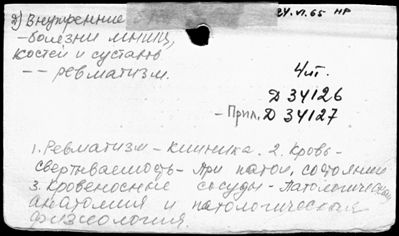 д) Внутренние 24.VI.65 НР
-болезни мышц,
костей и суставов
-- ревматизм.
4ит.
Д 34126
- Прил. Д 34127
1. Ревматизм - клиника. 2. Кровь -
свертываемость - при патол. состоянии
3. Кровеносные сосуды - Патологическая
анатомия и патологическая
физиология.